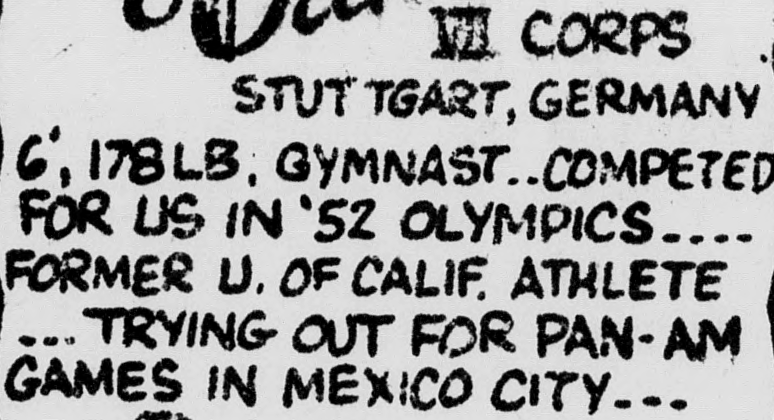 VII CORPS
STUTTGART, GERMANY
6', 178 LB, GYMNAST..COMPETED
FOR US IN '52 OLYMPICS....
FORMER U. OF CALIF. ATHLETE
... TRYING OUT FOR PAN-AM
GAMES IN MEXICO CITY...